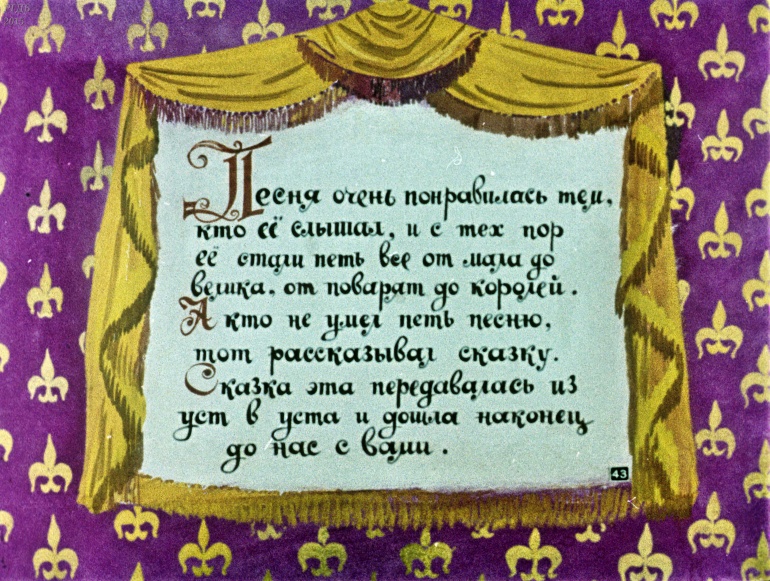 Песня очень понравилась тем,
кто её слышал, и с тех пор
её стали петь все от мала до
велика, от поварят до королей.
А кто не умел петь песню,
тот рассказывал сказку.
Сказка эта передавалась из
уст в уста и дошла наконец
до нас с вами.
43